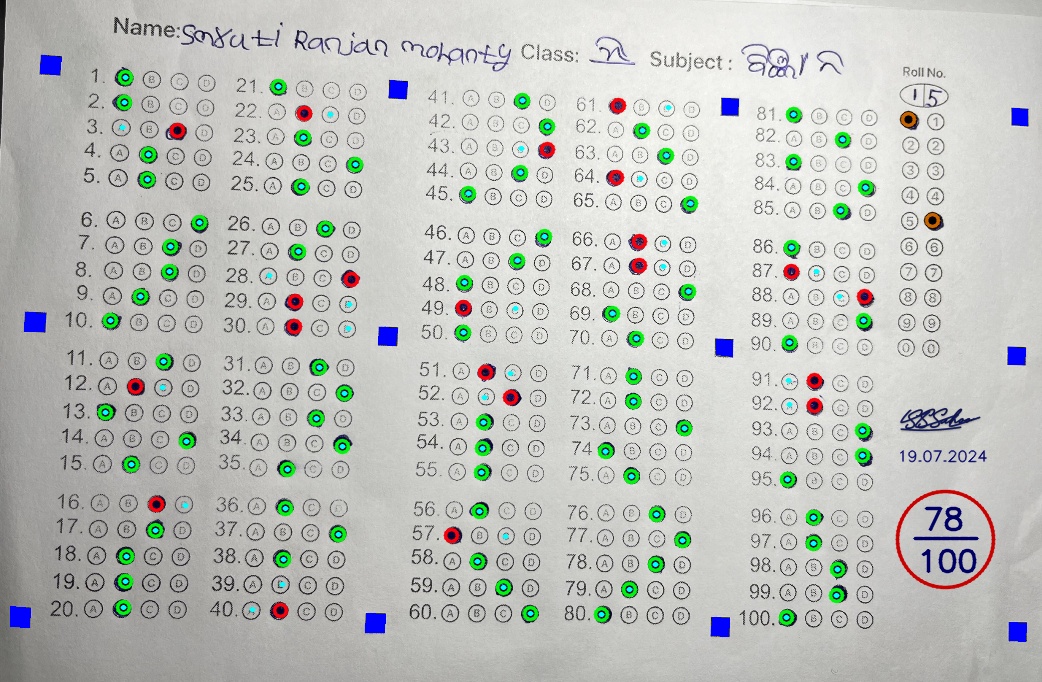 Name: Smruti Ranjan mohanty Class: Subject:
Roll No.
1 5
1. A B C D
2. A B C D
3. A B C D
4. A B C D
5. A B C D
6. A B C D
7. A B C D
8. A B C D
9. A B C D
10. A B C D
11. A B C D
12. A B C D
13. A B C D
14. A B C D
15. A B C D
16. A B C D
17. A B C D
18. A B C D
19. A B C D
20. A B C D
21. A B C D
22. A B C D
23. A B C D
24. A B C D
25. A B C D
26. A B C D
27. A B C D
28. A B C D
29. A B C D
30. A B C D
31. A B C D
32. A B C D
33. A B C D
34. A B C D
35. A B C D
36. A B C D
37. A B C D
38. A B C D
39. A B C D
40. A B C D
41. A B C D
42. A B C D
43. A B C D
44. A B C D
45. A B C D
46. A B C D
47. A B C D
48. A B C D
49. A B C D
50. A B C D
51. A B C D
52. A B C D
53. A B C D
54. A B C D
55. A B C D
56. A B C D
57. A B C D
58. A B C D
59. A B C D
60. A B C D
61. A B C D
62. A B C D
63. A B C D
64. A B C D
65. A B C D
66. A B C D
67. A B C D
68. A B C D
69. A B C D
70. A B C D
71. A B C D
72. A B C D
73. A B C D
74. A B C D
75. A B C D
76. A B C D
77. A B C D
78. A B C D
79. A B C D
80. A B C D
81. A B C D
82. A B C D
83. A B C D
84. A B C D
85. A B C D
86. A B C D
87. A B C D
88. A B C D
89. A B C D
90. A B C D
91. A B C D
92. A B C D
93. A B C D
94. A B C D
95. A B C D
96. A B C D
97. A B C D
98. A B C D
99. A B C D
100. A B C D
1
2 2
3 3
4 4
5
6 6
7 7
8 8
9 9
0 0
19.07.2024
78
100